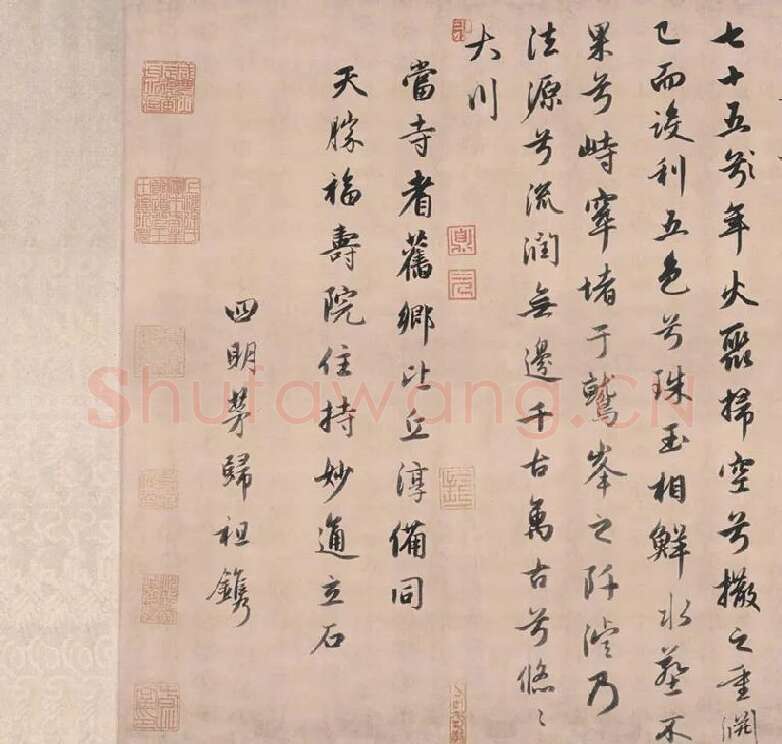 七十五兮年火聚掃空兮撒之重淵
已而設利五色兮珠玉相鮮水葬不
果兮峙窣堵于鷲峯之阡滹乃
法源兮流潤無邊千古萬古兮悠〻
大川
當寺耆舊鄉比丘淳備同
天勝福壽院住持妙通立石
四明茅歸祖鐫
Shufawang.CN